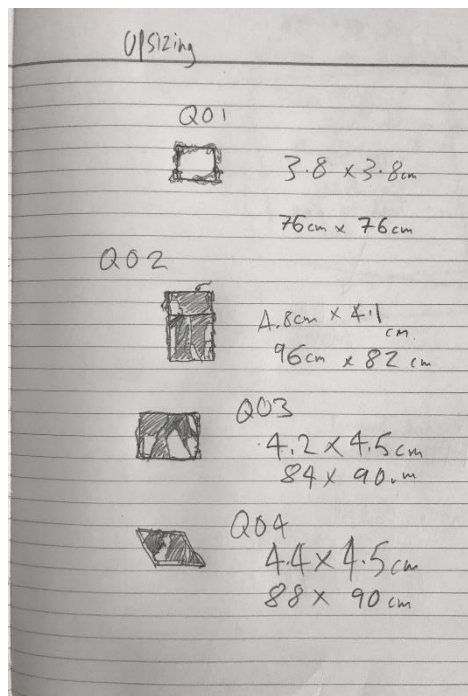 Upsizing
Q01
3.8 x 3.8cm
76cm x 76cm
Q02
4.8cm x 4.1
cm.
96cm x 82 cm
Q03
4.2 x 4.5cm
84 x 90cm
Q04
4.4 x 4.5cm
88 x 90cm